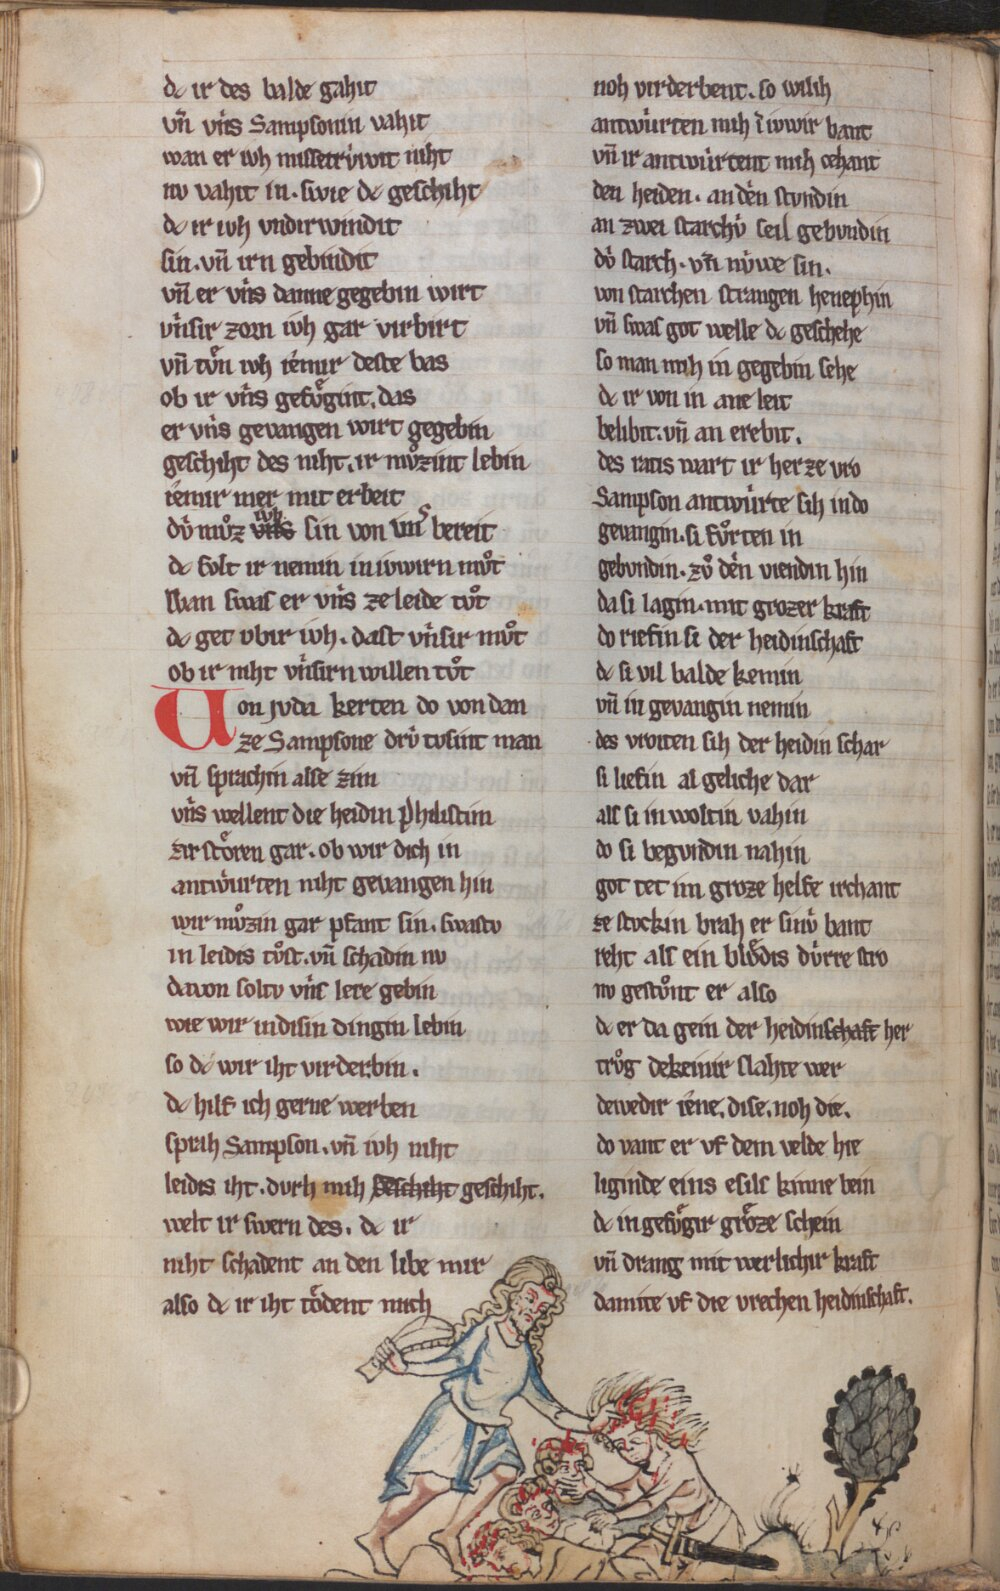 dc ir des balde gahit
vn̄ vńs Sampsonin vahit
wan er ivh missetrv́wit niht
nv vahit in. swie dc geschiht
dc ir ivh vndirwindit
sin. vn̄ irn gebindit
vn̄ er vńs danne gegebin wirt
vńsir zorn ivh gar virbirt
vn̄ tvͦn ivh iemir deste bas
ob ir vńs gefvͤgint. das
er vńs gevangen wirt gegebin
geschiht des niht. ir mvͦzint lebin
iemir mer mit erbeit
dv́ mvͦz ivh sin von vns bereit
dc solt ir nemin in ivwirn mvͦt
Swan swas er vńs ze leide tvͦt
dc get vbir ivh. dast vńsir mvͦt
ob ir niht vńsirn willen tvͦt
Von jvda kerten do von dan
ze Sampsone drv́ tvsint man
vn̄ sprachin alse zim
vńs wellent die heidin Philistim
zirstoͤren gar. ob wir dich in
antwúrten niht gevangen hin
wir mvͦzin gar pfant sin. swastv
in leidis tvͦst. vn̄ schadin nv
davon soltv vńs lere gebin
wie wir in disin dingin lebin
so dc wir iht virderbin.
dc hilf ich gerne werben
sprah Sampson. vn̄ ivh niht
leidis iht. dvrh mih geschiht.
welt ir swern des. dc ir
niht schadent an den libe mir
also dc ir iht toͤdent mich
noh virderbent. so wil ih
antwúrten mih ī ivwir bant
vn̄ ir antwúrtent mih cehant
den heiden. an dén stvndin
an zwei starchv́ seil gebvndin
dv́ starch. vn̄ nv́we sin.
von starchen strangen henephin
vn̄ swas got welle dc geschehe
so man mih in gegebin sehe
dc ir von in ane leit
belibit. vn̄ an erebit.
des ratis wart ir herze vro
Sampson antwúrte sih in do
gevangin. si fvͦrten in
gebvndin. zvͦ dén viendin hin
da si lagin. mit grozer kraft
do riefin si der heidinschaft
dc si vil balde kemin
vn̄ in gevangin nemin
des vroiten sih der heidin schar
si liefin al geliche dar
als si in woltin vahin
do si begvndin nahin
got tet im groze helfe irchant
ze stvckin brah er sinv́ bant
reht als ein bloͤdis dv́rre stro
nv gestvͦnt er also
dc er da gein der heidinschaft her
trvͦg dekeinir slahte wer
dewedir iéne, dise, noh die.
do vant er vf dem velde hie
liginde eins esils kinne bein
dc in gefvͤgir groͤze schein
vn̄ drang mit werlichir kraft
damite vf die vrechen heidinschaft.